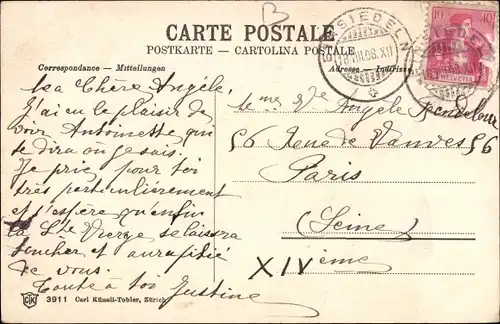 B
CARTE POSTALE
POSTKARTE – CARTOLINA POSTALE
EINSIEDELN
10 10
HELVETIA
Correspondance – Mitteilungen
Adresse – Indirizzo
Ma Chère Angèle,
J'ai eu le plaisir de
voir Antoinette qui
te dira où je suis.
Je prie pour toi
très particulièrement
et j'espère qu'enfin
la Ste Vierge se laissera
toucher et aura pitié
de vous.
Toute à toi Justine
Mme Vve Angèle
56 Rue de Vanves 56
Paris
(Seine)
XIVème
CK 3911 Carl Künzli-Tobler, Zürich